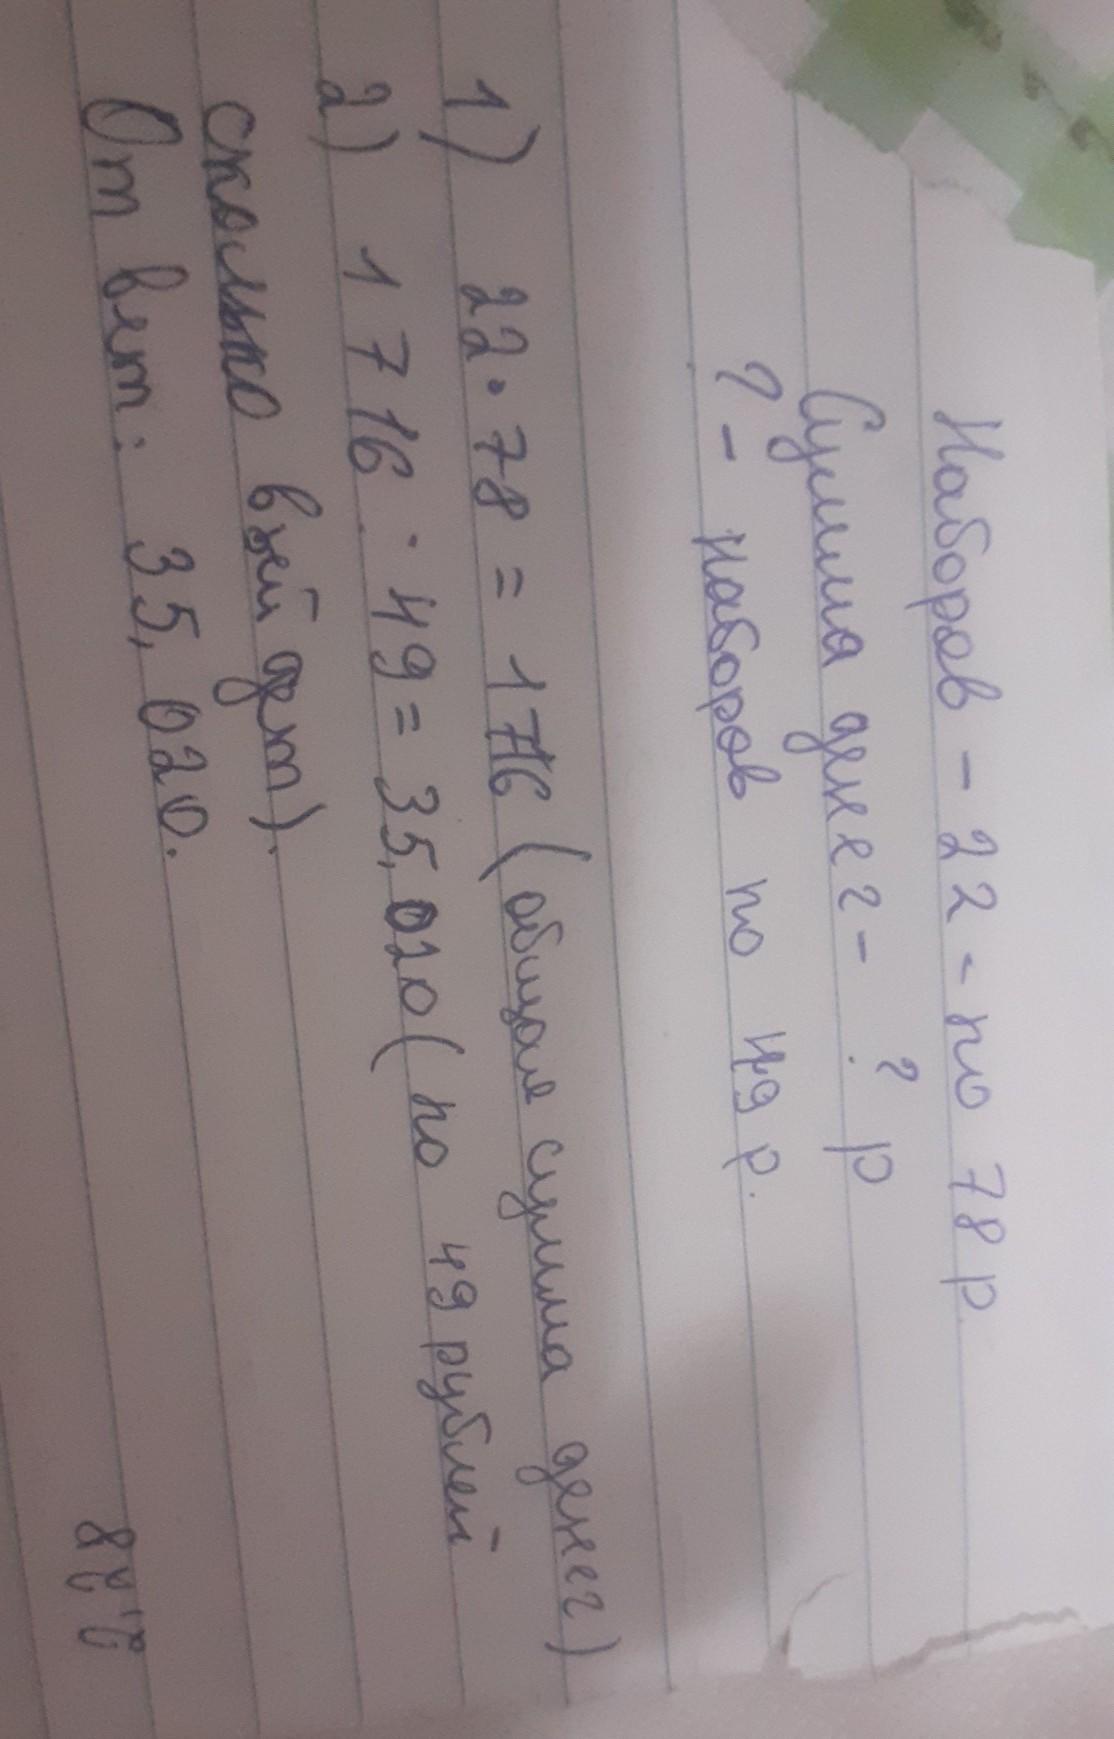 Наборов - 22 - по 78 р.
Сумма денег - ? р
? - наборов по 49 р.
1) 22 • 78 = 1716 (общая сумма денег)
2) 1 716 : 49 = 35,020 (по 49 рублей
сколько взей дет).
Ответ: 35,020.